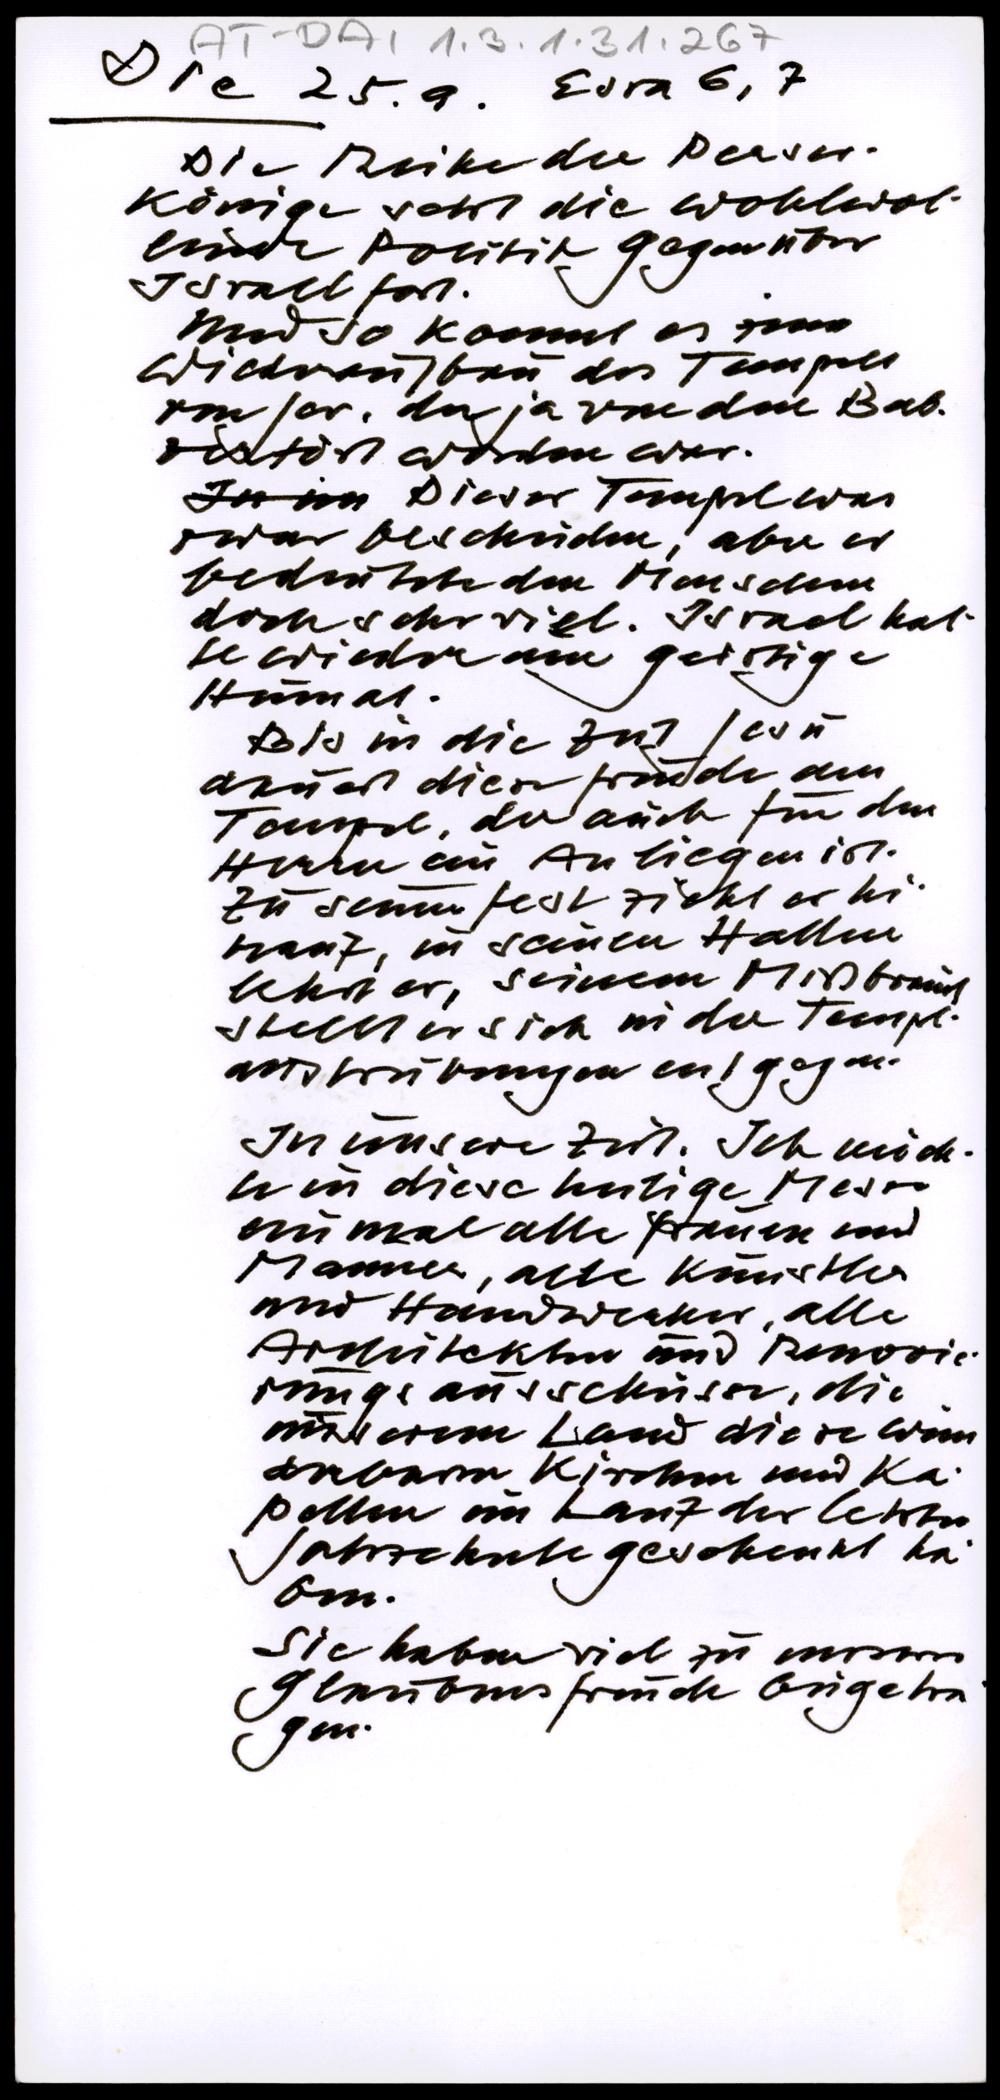 AT-DAI 1.3.1.31.267
Die 25.9. Esra 6,7
Die Reihe der Perser-
Könige setzt die wohlwol-
lende Politik gegenüber
Israel fort.
Und so kommt es zum
Wiederaufbau des Tempels
von Jer. der ja von den Bab.
zerstört worden war.
In im Dieser Tempel war
zwar bescheiden, aber er
bedeutete den Menschen
doch sehr viel. Israel hat-
te wieder eine geistige
Heimat.
Bis in die Zeit Jesu
dauert diese Freude am
Tempel, der auch für den
Herrn ein Anliegen ist.
Zu seinem Fest zieht er hi-
nauf, in seinen Hallen
lehrt er, seinem Mißbrauch
stellt er sich in der Tempel-
austreibungen entgegen.
In unsere Zeit. Ich möch-
te in diese heutige Messe
einmal alle Frauen und
Männer, alle Künstler
und Handwerker, alle
Architekten und Renovie-
rungsausschüsse, die
unserem Land diese wun
derbaren Kirchen und Ka-
pellen im Lauf der letzten
Jahrzehnte geschenkt ha-
ben.
Sie haben viel zu unserer
Glaubensfreude beigetra-
gen.